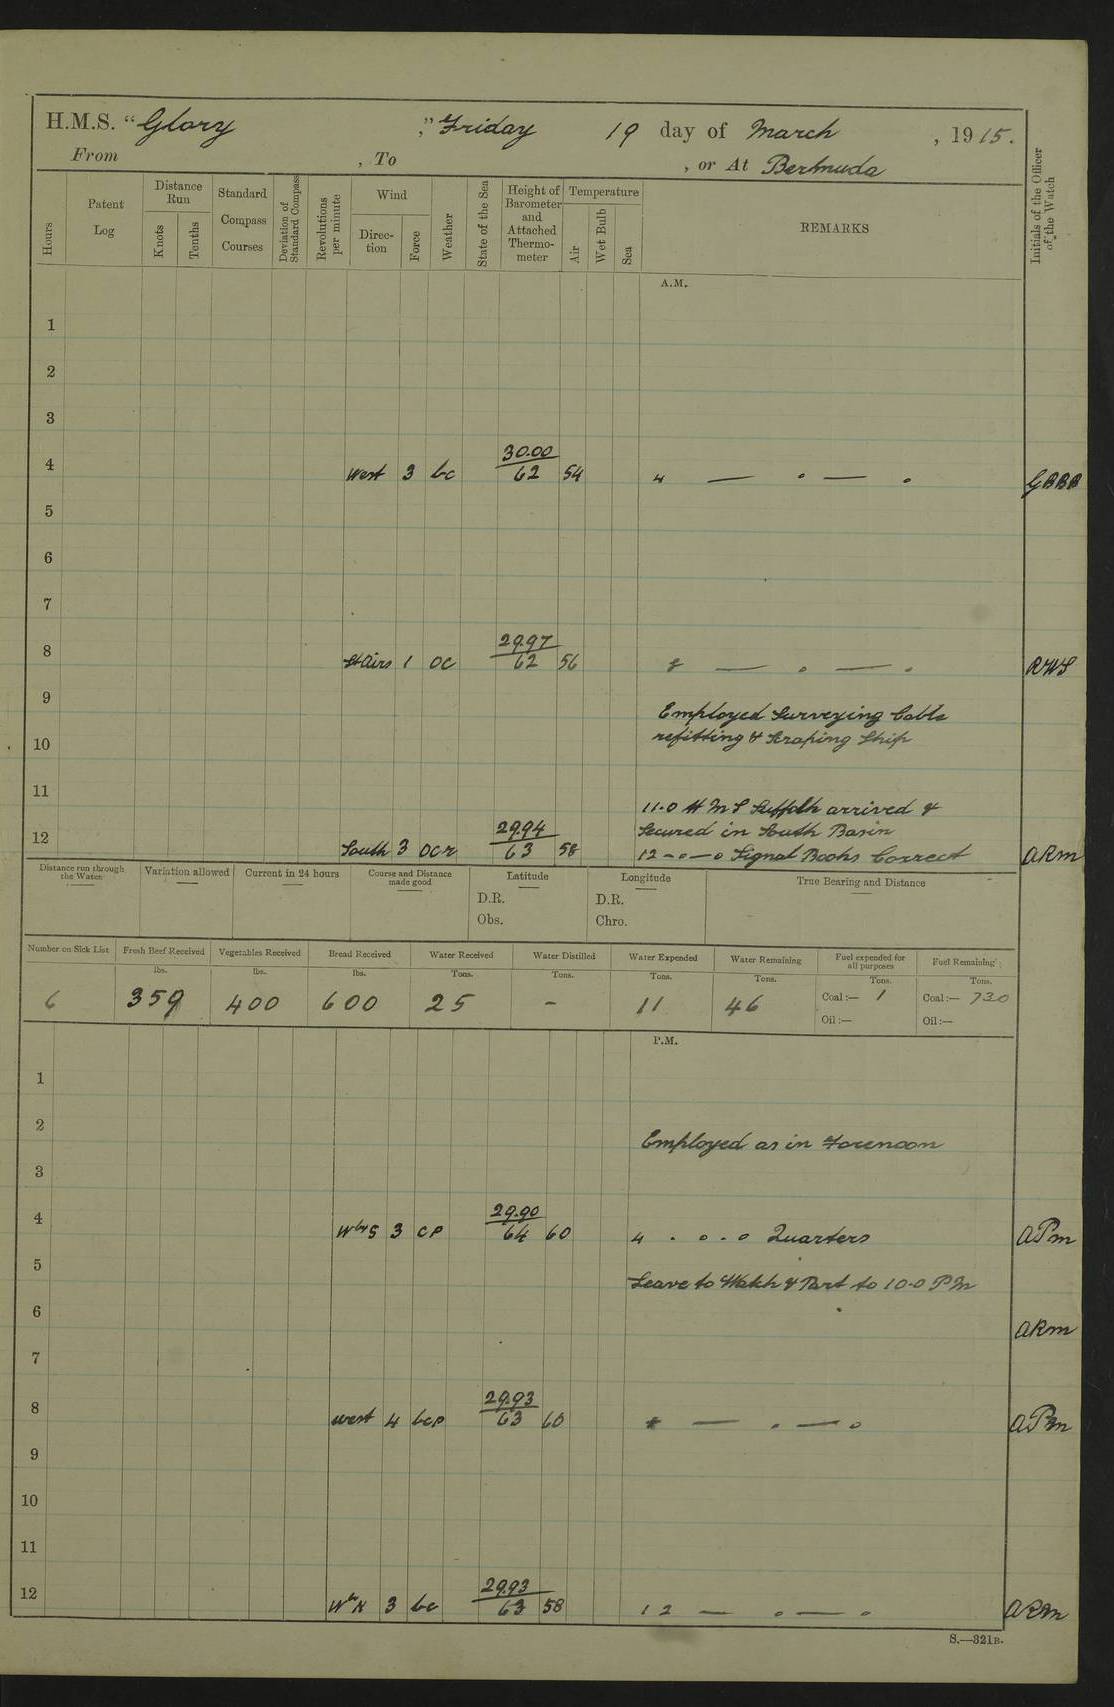 H.M.S. "Glory," Friday 19 day of March, 1915.
From , To , or At Bermuda
Hours
Patent Log
Distance Run
Knots
Tenths
Standard Compass Courses
Deviation of Standard Compass
Revolutions per minute
Wind
Direction
Force
Weather
State of the Sea
Height of Barometer and Attached Thermometer
Temperature
Air
Wet Bulb
Sea
REMARKS
Initials of the Officer of the Watch
A.M.
1
2
3
4 West 3 bc 30.00 62 54 4 — o — o GBBB
5
6
7
8 Lt Airs 1 oc 29.97 62 56 8 — o — o RWS
9 Employed Surveying Cable
10 refitting & Scraping Ship
11 11.0 H M S Suffolk arrived &
Secured in South Basin
12 South 3 ocr 29.94 63 58 12 - o - o Signal Books Correct ARM
Distance run through the Water
Variation allowed
Current in 24 hours
Course and Distance made good
Latitude
D.R.
Obs.
Longitude
D.R.
Chro.
True Bearing and Distance
Number on Sick List
Fresh Beef Received
Vegetables Received
Bread Received
Water Received
Water Distilled
Water Expended
Water Remaining
Fuel expended for all purposes
Fuel Remaining
lbs. lbs. lbs. Tons. Tons. Tons. Tons. Tons. Tons.
6 359 400 600 25 - 11 46 Coal:— 1 Coal:— 730
Oil:— Oil:—
P.M.
1
2 Employed as in Forenoon
3
4 W by S 3 cp 29.90 64 60 4 . o . o Quarters APM
5 Leave to Watch & Part to 10.0 PM
6 ARM
7
8 West 4 bcp 29.93 63 60 8 — . — o APM
9
10
11
12 W by N 3 bc 29.93 63 58 12 — o — o ARM
S.—321B.